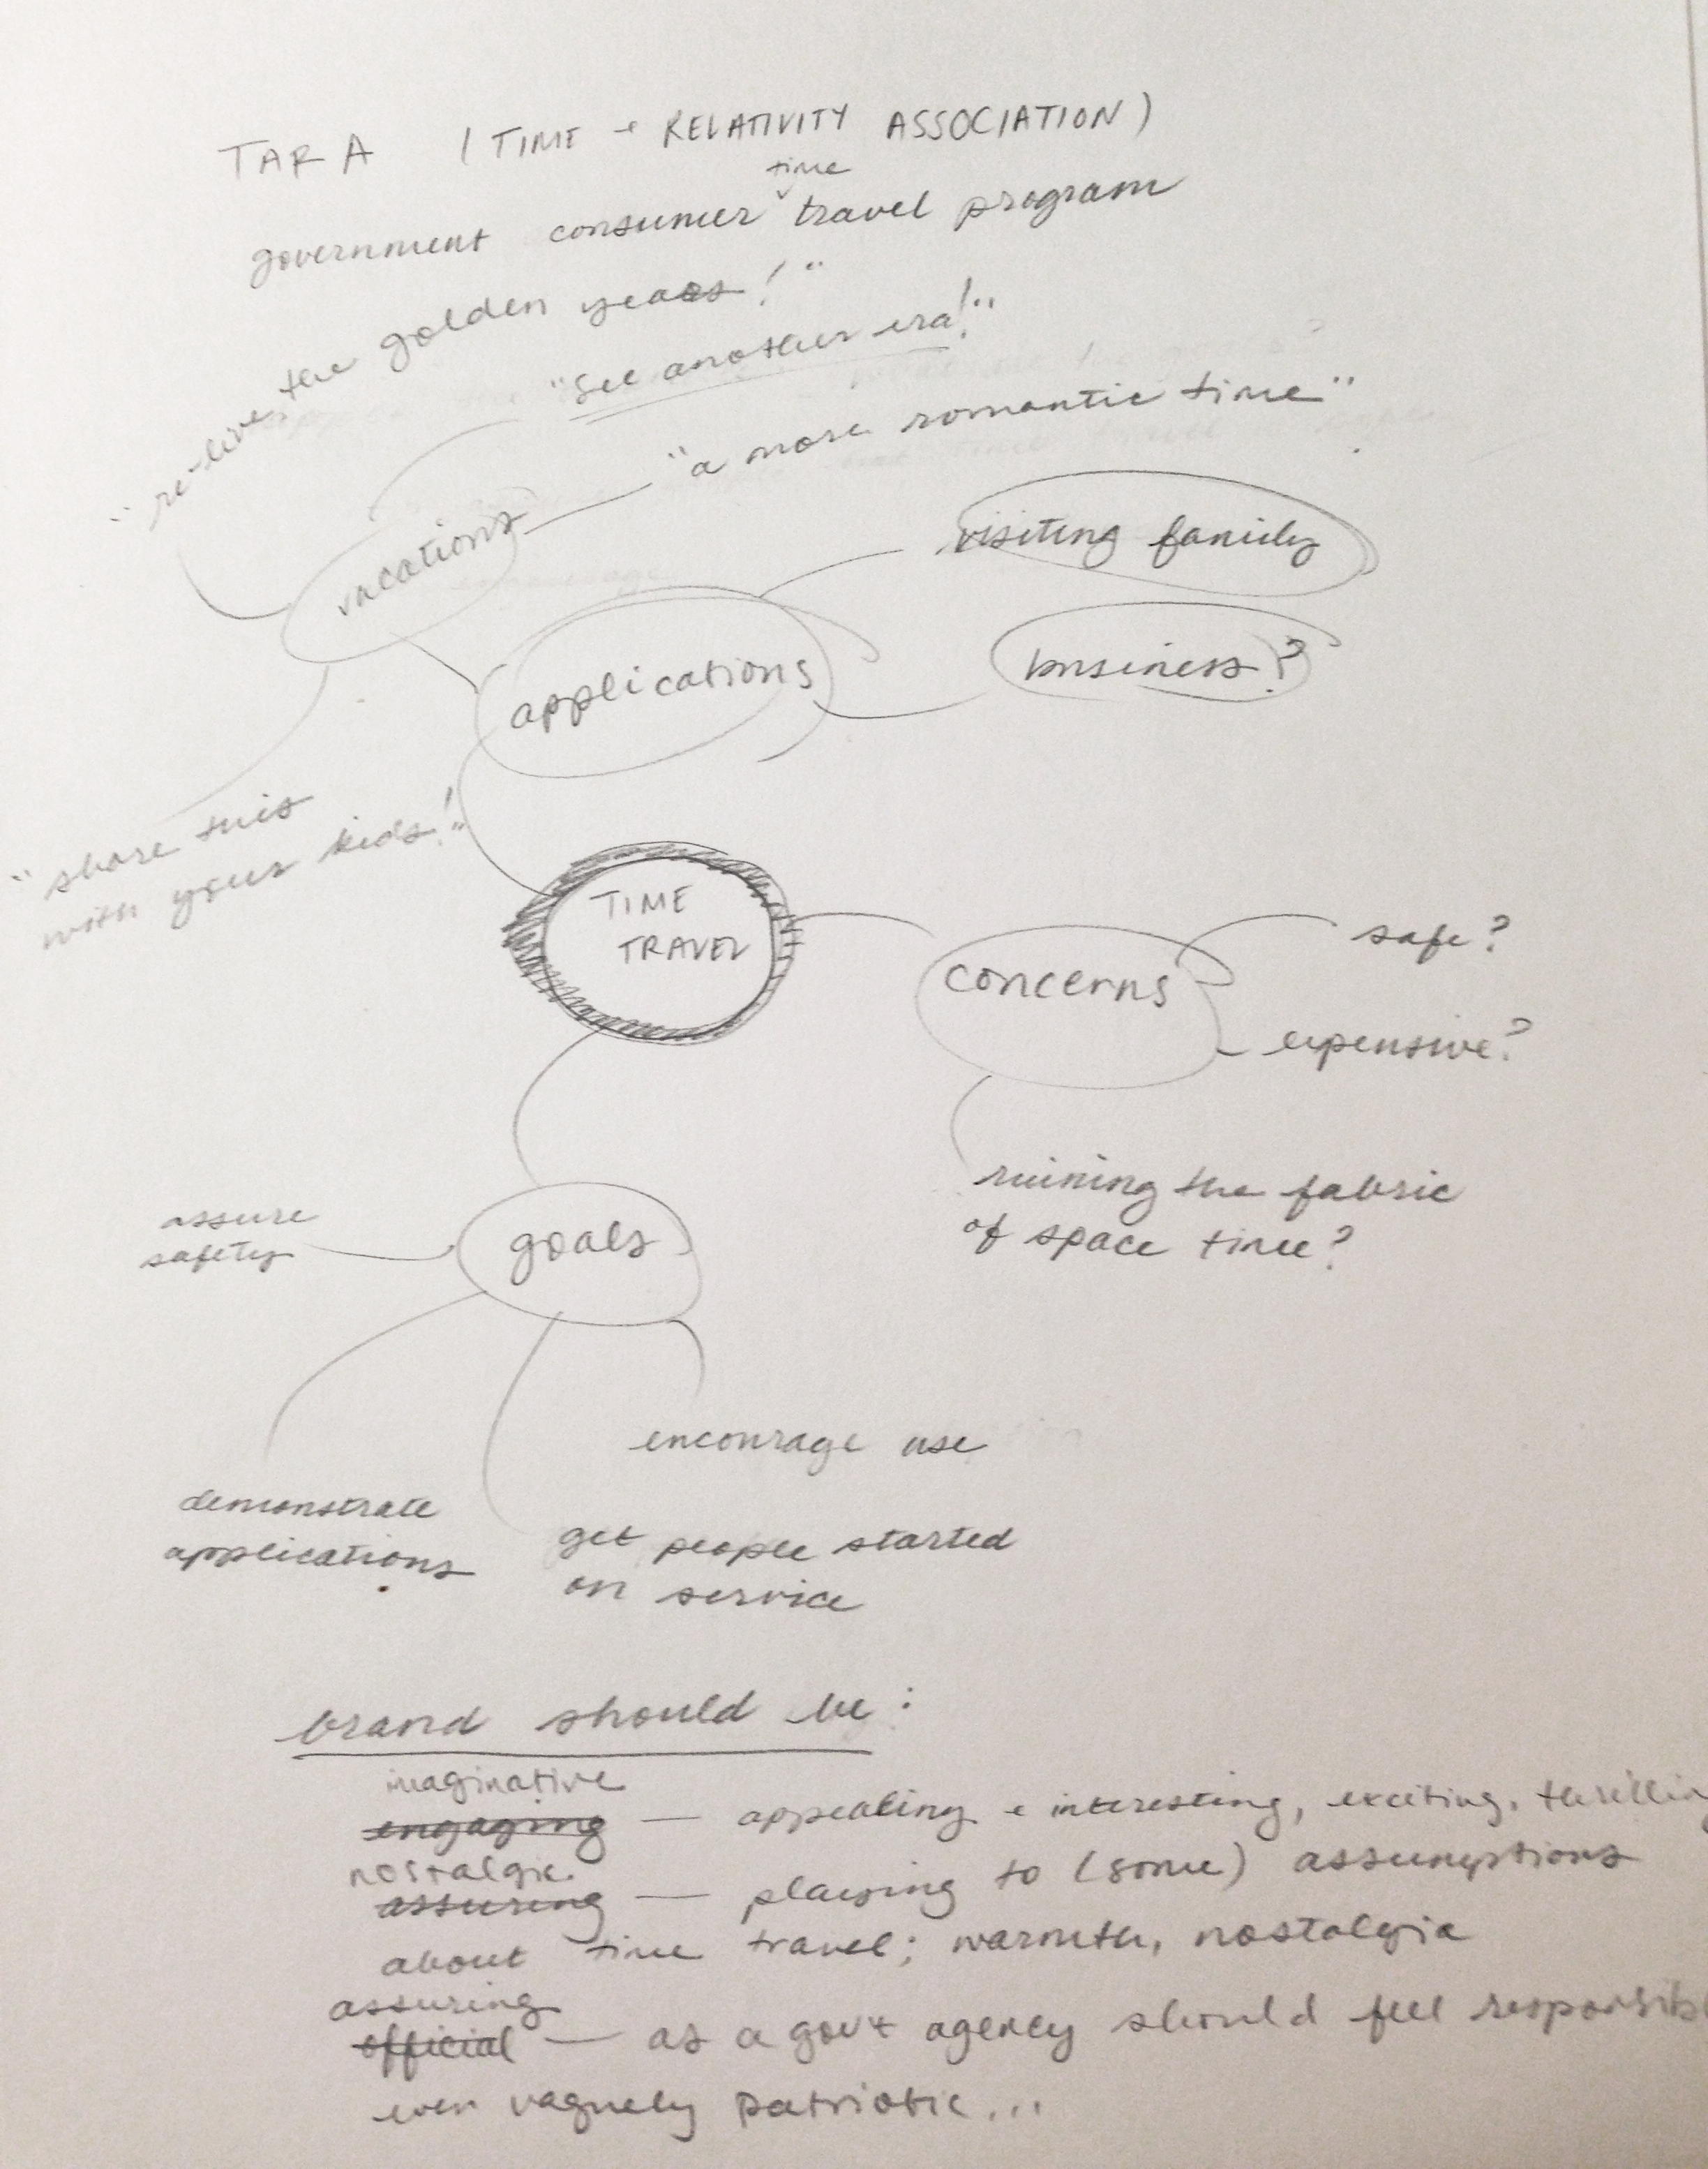 TARA (TIME + RELATIVITY ASSOCIATION)
time
government consumer travel program
"re-live the golden years!"
"see another era!"
"a more romantic time"
vacations
visiting family
applications
business?
"share this
with your kids!"
TIME
TRAVEL
concerns
safe?
expensive?
ruining the fabric
of space time?
assure
safety
goals
encourage use
demonstrate
applications
get people started
on service
brand should be:
imaginative
engaging — appealing + interesting, exciting, thrilling
nostalgic
assuring — playing to (some) assumptions
about time travel; warmth, nostalgia
assuring
official — as a gov't agency should feel
even vaguely patriotic...